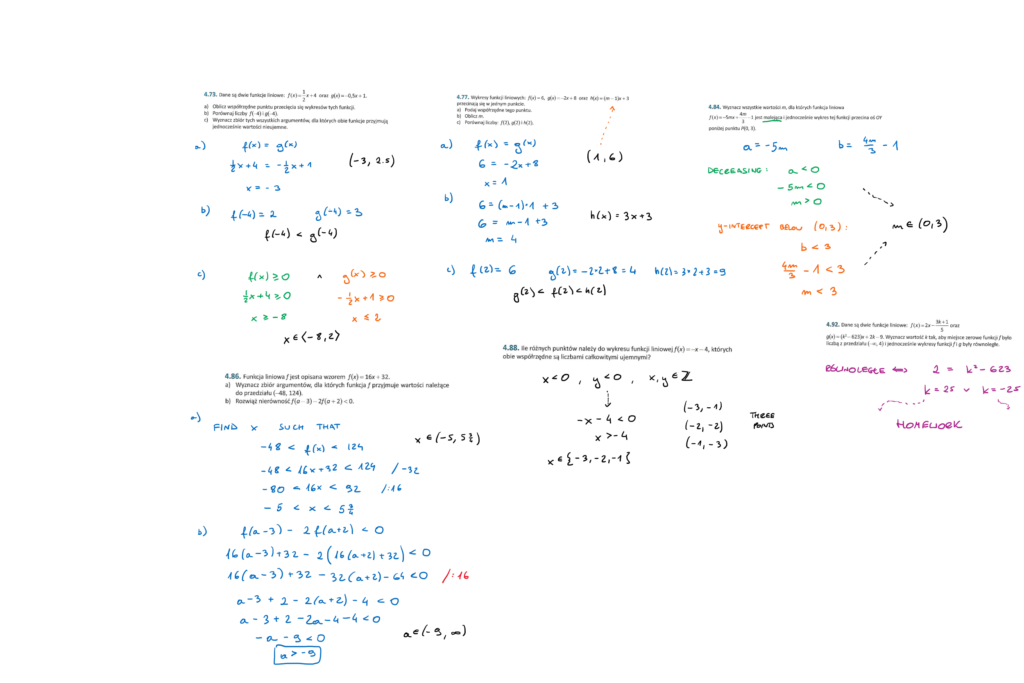 4.73. Dane są dwie funkcje liniowe: f(x) = 1/2 x + 4 oraz g(x) = −0,5x + 1.
a) Oblicz współrzędne punktu przecięcia się wykresów tych funkcji.
b) Porównaj liczby f(−4) i g(−4).
c) Wyznacz zbiór tych wszystkich argumentów, dla których obie funkcje przyjmują
jednocześnie wartości nieujemne.
a) f(x) = g(x)
1/2 x + 4 = −1/2 x + 1
(−3, 2.5)
x = −3
b) f(−4) = 2 g(−4) = 3
f(−4) < g(−4)
c) f(x) ≥ 0 ∧ g(x) ≥ 0
1/2 x + 4 ≥ 0 −1/2 x + 1 ≥ 0
x ≥ −8 x ≤ 2
x ∈ ⟨−8, 2⟩
4.77. Wykresy funkcji liniowych: f(x) = 6, g(x) = −2x + 8 oraz h(x) = (m − 1)x + 3
przecinają się w jednym punkcie.
a) Podaj współrzędne tego punktu.
b) Oblicz m.
c) Porównaj liczby: f(2), g(2) i h(2).
a) f(x) = g(x)
6 = −2x + 8
(1, 6)
x = 1
b) 6 = (m−1)·1 + 3
6 = m − 1 + 3
h(x) = 3x + 3
m = 4
c) f(2) = 6 g(2) = −2·2 + 8 = 4 h(2) = 3·2 + 3 = 9
g(2) < f(2) < h(2)
4.84. Wyznacz wszystkie wartości m, dla których funkcja liniowa
f(x) = −5mx + 4m/3 − 1 jest malejąca i jednocześnie wykres tej funkcji przecina oś OY
poniżej punktu P(0, 3).
a = −5m b = 4m/3 − 1
DECREASING: a < 0
−5m < 0
m > 0
m ∈ (0, 3)
y-INTERCEPT BELOW (0, 3):
b < 3
4m/3 − 1 < 3
m < 3
4.86. Funkcja liniowa f jest opisana wzorem f(x) = 16x + 32.
a) Wyznacz zbiór argumentów, dla których funkcja f przyjmuje wartości należące
do przedziału (−48, 124).
b) Rozwiąż nierówność f(a − 3) − 2f(a + 2) < 0.
a) FIND x SUCH THAT
−48 < f(x) < 124
x ∈ (−5, 5 3/4)
−48 < 16x + 32 < 124 /−32
−80 < 16x < 92 /:16
−5 < x < 5 3/4
b) f(a−3) − 2f(a+2) < 0
16(a−3) + 32 − 2(16(a+2) + 32) < 0
16(a−3) + 32 − 32(a+2) − 64 < 0 /:16
a−3 + 2 − 2(a+2) − 4 < 0
a − 3 + 2 − 2a − 4 − 4 < 0
−a − 9 < 0
a ∈ (−9, ∞)
a > −9
4.88. Ile różnych punktów należy do wykresu funkcji liniowej f(x) = −x − 4, których
obie współrzędne są liczbami całkowitymi ujemnymi?
x < 0 , y < 0 , x, y ∈ ℤ
−x − 4 < 0
x > −4
x ∈ {−3, −2, −1}
(−3, −1)
(−2, −2)
(−1, −3)
THREE
POINTS
4.92. Dane są dwie funkcje liniowe: f(x) = 2x − 3k+1/5 oraz
g(x) = (k² − 623)x + 2k − 9. Wyznacz wartość k tak, aby miejsce zerowe funkcji f było
liczbą z przedziału (−∞, 4) i jednocześnie wykresy funkcji f i g były równoległe.
RÓWNOLEGŁE ⟺ 2 = k² − 623
k = 25 ∨ k = −25
HOMEWORK